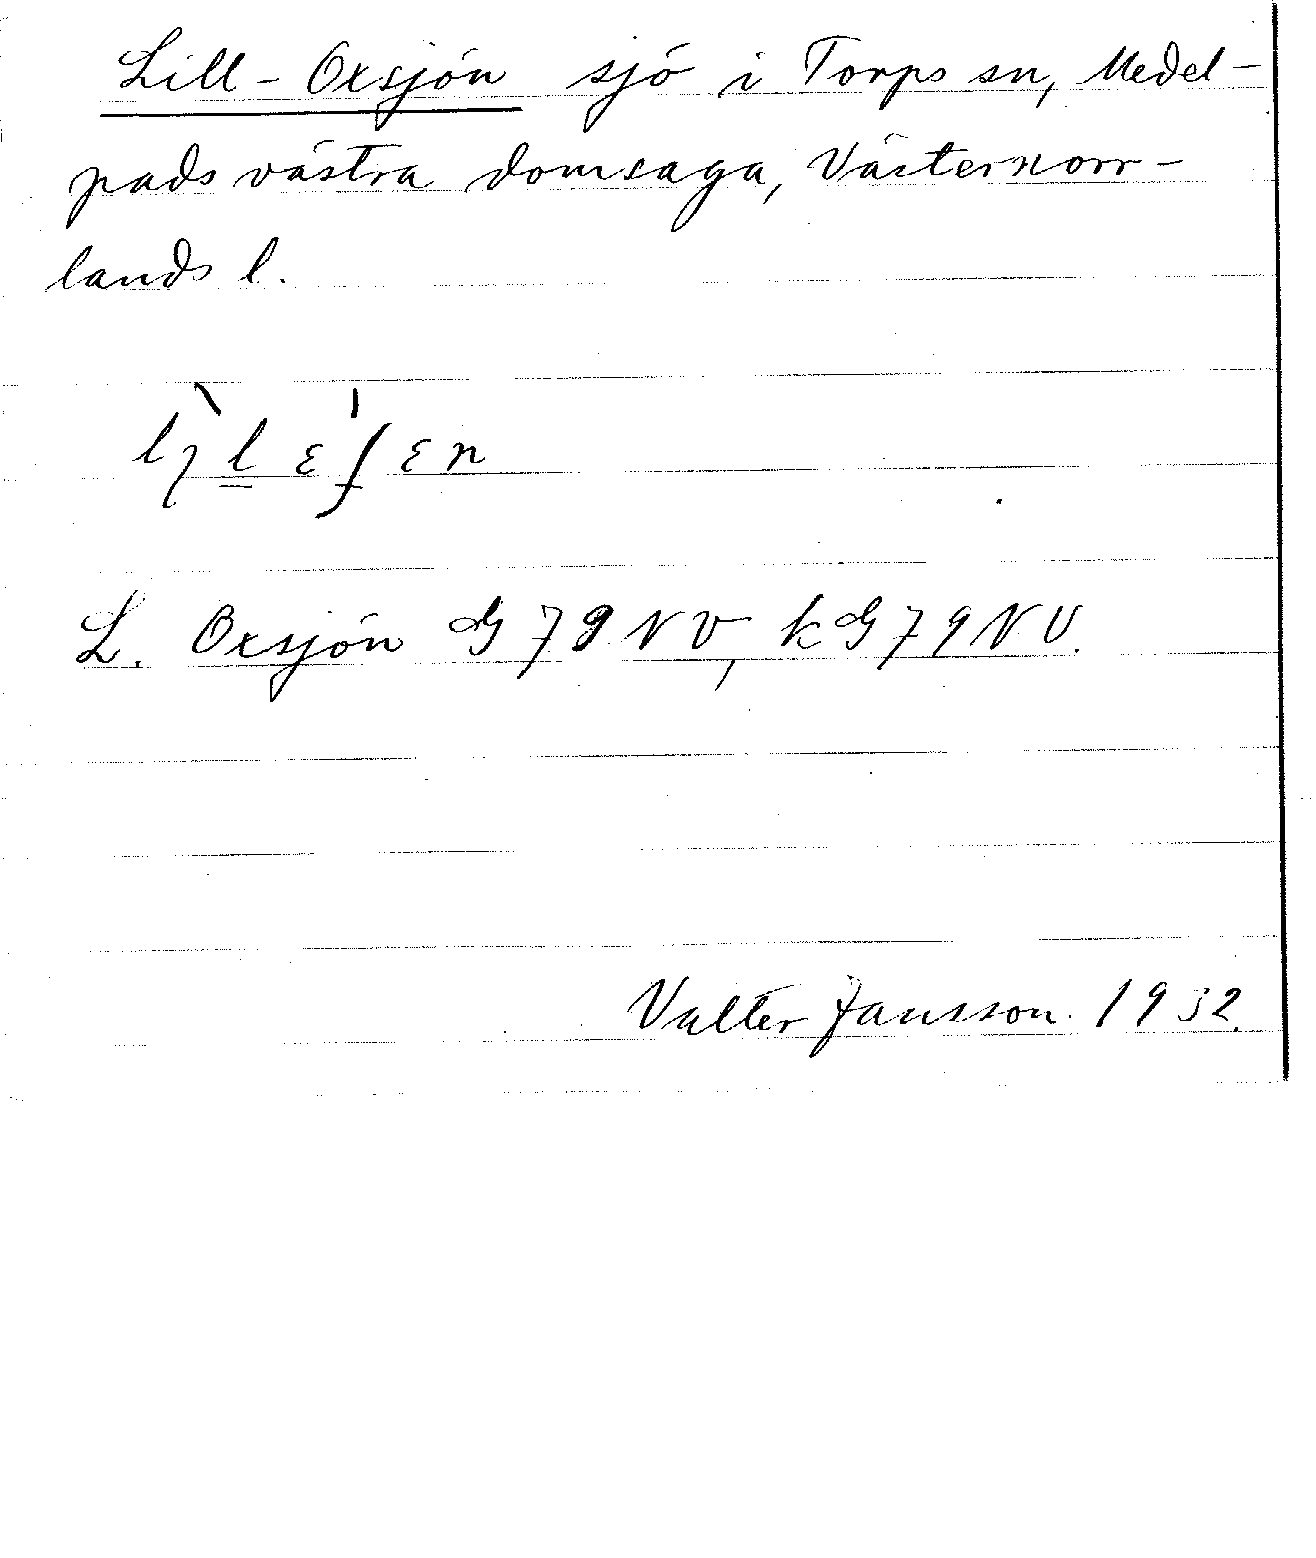 Lill-Oxsjön sjö i Torps sn, Medel-
pads västra domsaga, Västernorr-
lands l.
L. Oxsjön G 79 NV, kG 79 NV.
Valter Jansson. 1932.